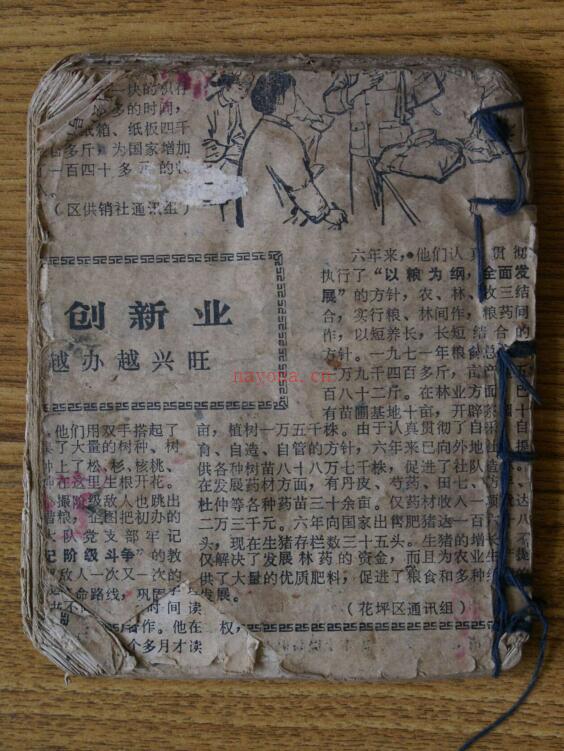 一块的积存
多的时间，
纸箱、纸板四千
多斤，为国家增加
一百四十多元的收
（区供销社通讯组）
创新业
越办越兴旺
六年来，他们认真贯彻
执行了“以粮为纲，全面发
展”的方针，农、林、牧三结
合，实行粮、林间作，粮药间
作，以短养长，长短结合的
方针。一九七一年粮食总
万九千四百多斤，亩产五
百八十二斤。在林业方面，已
有苗圃基地十亩，开辟
他们用双手搭起了
了大量的树种、树
种上了松、杉、核桃、
在这里生根开花。
振阶级敌人也跳出
粮，企图把初办的
大队党支部牢记
记阶级斗争”的教
敌人一次又一次的
命路线，巩固
时间读
作。他在
个多月才读
亩，植树一万五千株。由于认真贯彻了自采、自
育、自造、自管的方针，六年来已向外地出
供各种树苗八十八万七千株，促进了社队造
在发展药材方面，有丹皮、芍药、田七、
杜仲等各种药苗三十余亩。仅药材收入一项
二万三千元。六年向国家出售肥猪达一百六十八
头，现在生猪存栏数三十五头。生猪的增长，不
仅解决了发展林药的资金，而且为农业生产提
供了大量的优质肥料，促进了粮食和多种经
发展。
（花坪区通讯组）
权，
nayona.cn